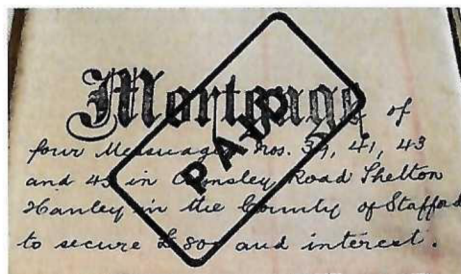 Mortgage of
four Messuages Nos. 39, 41, 43
and 45 in Ormsley Road Shelton
Hanley in the County of Stafford
to secure £800 and interest.
PAID